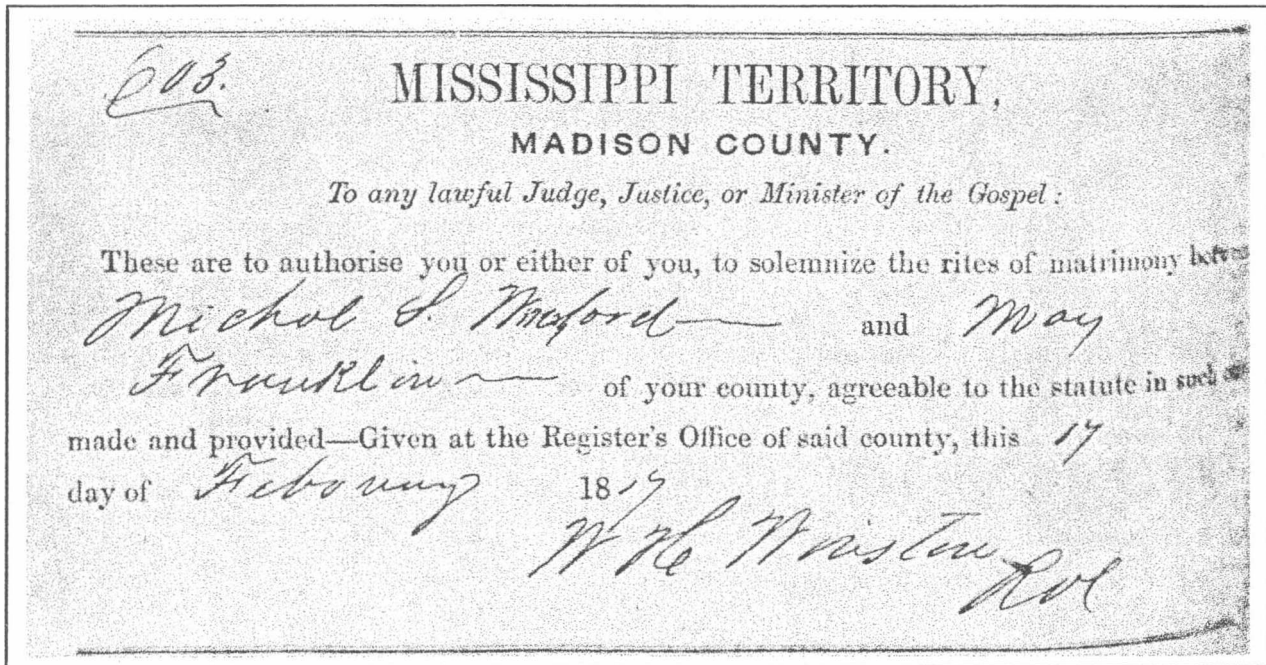 603.
MISSISSIPPI TERRITORY,
MADISON COUNTY.
To any lawful Judge, Justice, or Minister of the Gospel:
These are to authorise you or either of you, to solemnize the rites of matrimony
Michol S. and May
Franklin of your county, agreeable to the statute in such
made and provided—Given at the Register's Office of said county, this 17
day of Febouary 1817
W H Winston